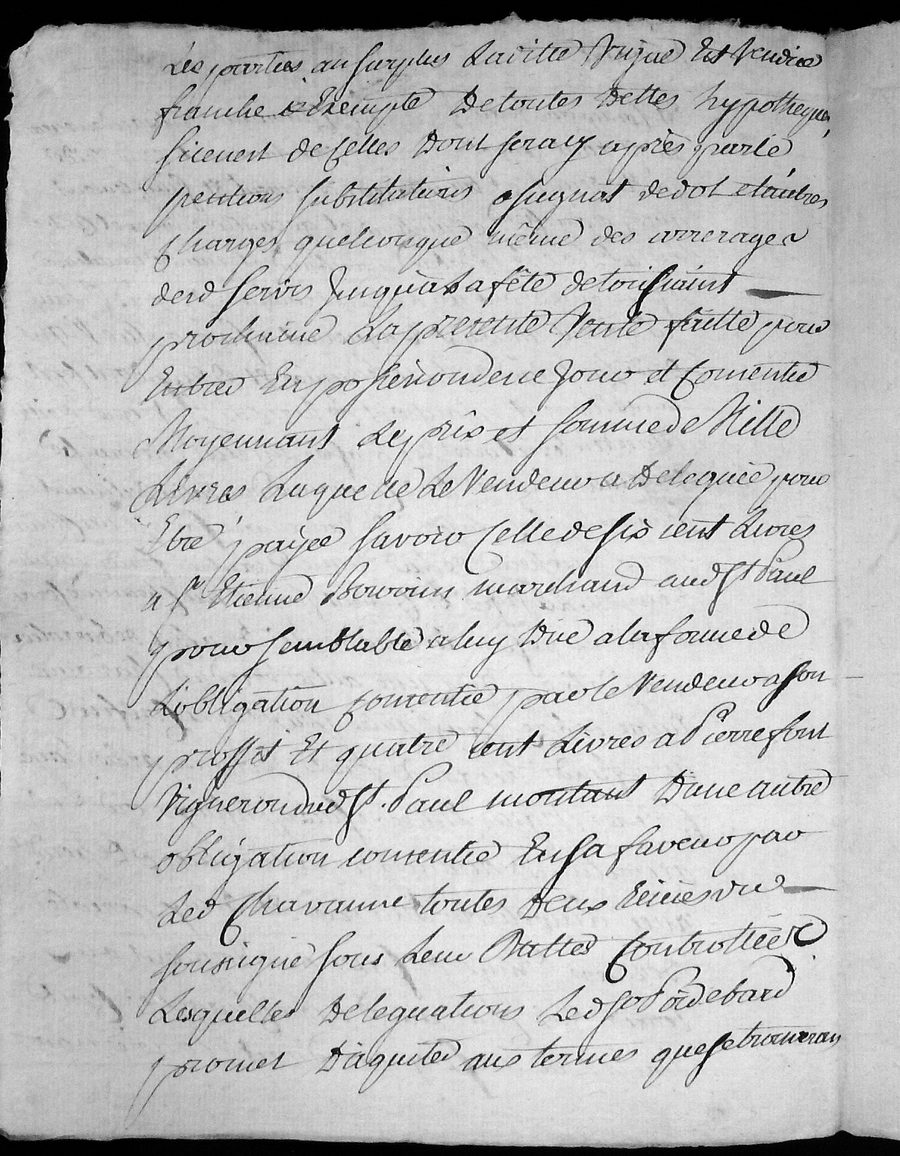 Les parties au surplus Laditte vigne Est vendue
franche & Exempte De toutes Dettes hypotheques
sicenest de Celles Dont sera cy après parlé
petitions substitutions assignat de dot et autres
Charges quelconque même des arrerages
derd servis Jusqu'à La fête de toussaint
prochaine La presente Vente faitte pour
Entrer En possession de ce Jour et Consentie
Moyennant Le prix et somme de Mille
Livres Laquelle Le Vendeur a Deleguée pour
Etre payée savoir Celle de six cent Livres
a Sr Etienne marchand aud St Paul
pour semblable a luy Due a la forme de
L'obligation Consentie par le Vendeur a son
proffit Et quatre cent Livres a Pierre font
Vigneron dud St. Paul montant D'une autre
obligation consentie En sa faveur par
Led Chavanne toutes Deux
soussigné sous Leur Dattes Controllées
Lesquelles Delegations Led Sr
promet D'aquiter aux termes que se trouveran